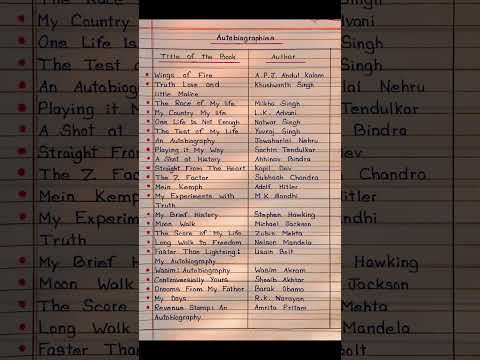 My Brief
My Country
One Life Is
The Test of
An Autobi
Playing it M
A Shot at
Straight From
The Z Fact
Mein Kemph
My Experime
Truth
My Brief Hi
Moon Walk
The Score
Long Walk
Faster Than
Autobiographies
Title of the Book Author
Wings of Fire A.P.J. Abdul Kalam
Truth Love and Khushwanth Singh
little Malice
The Race of My life Milkha Singh
My Country My life L.K. Advani
One Life Is Not Enough Natwar Singh
The Test of My Life Yuvraj Singh
An Autobiography Jawaharlal Nehru
Playing it My Way Sachin Tendulkar
A Shot at History Abhinav Bindra
Straight From The Heart Kapil Dev
The Z Factor Subhash Chandra
Mein Kemph Adolf Hitler
My Experiments with M.K Gandhi
Truth
My Brief History Stephen Hawking
Moon Walk Michael Jackson
The Score of My Life Zubin Mehta
Long Walk to Freedom Nelson Mandela
Faster Than Lightning: Usain Bolt
My Autobiography
Wasim: Autobiography Wasim Akram
Controversially Yours Shoaib Akhtar
Dreams From My Father Barak Obama
My Days R.K. Narayan
Revenue Stamp: An Amrita Pritam
Autobiography
Singh
Advani
Singh
Singh
lal Nehru
Tendulkar
Bindra
Dev
Chandra
Hitler
andhi
Hawking
Jackson
Mehta
Mandela
olt